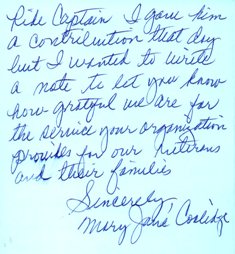 Ride Captain I gave him
a contribution that day
but I wanted to write
a note to let you know
how grateful we are for
the service your organization
provides for our Veterans
and their families
Sincerely,
Mary Jane Coolidge